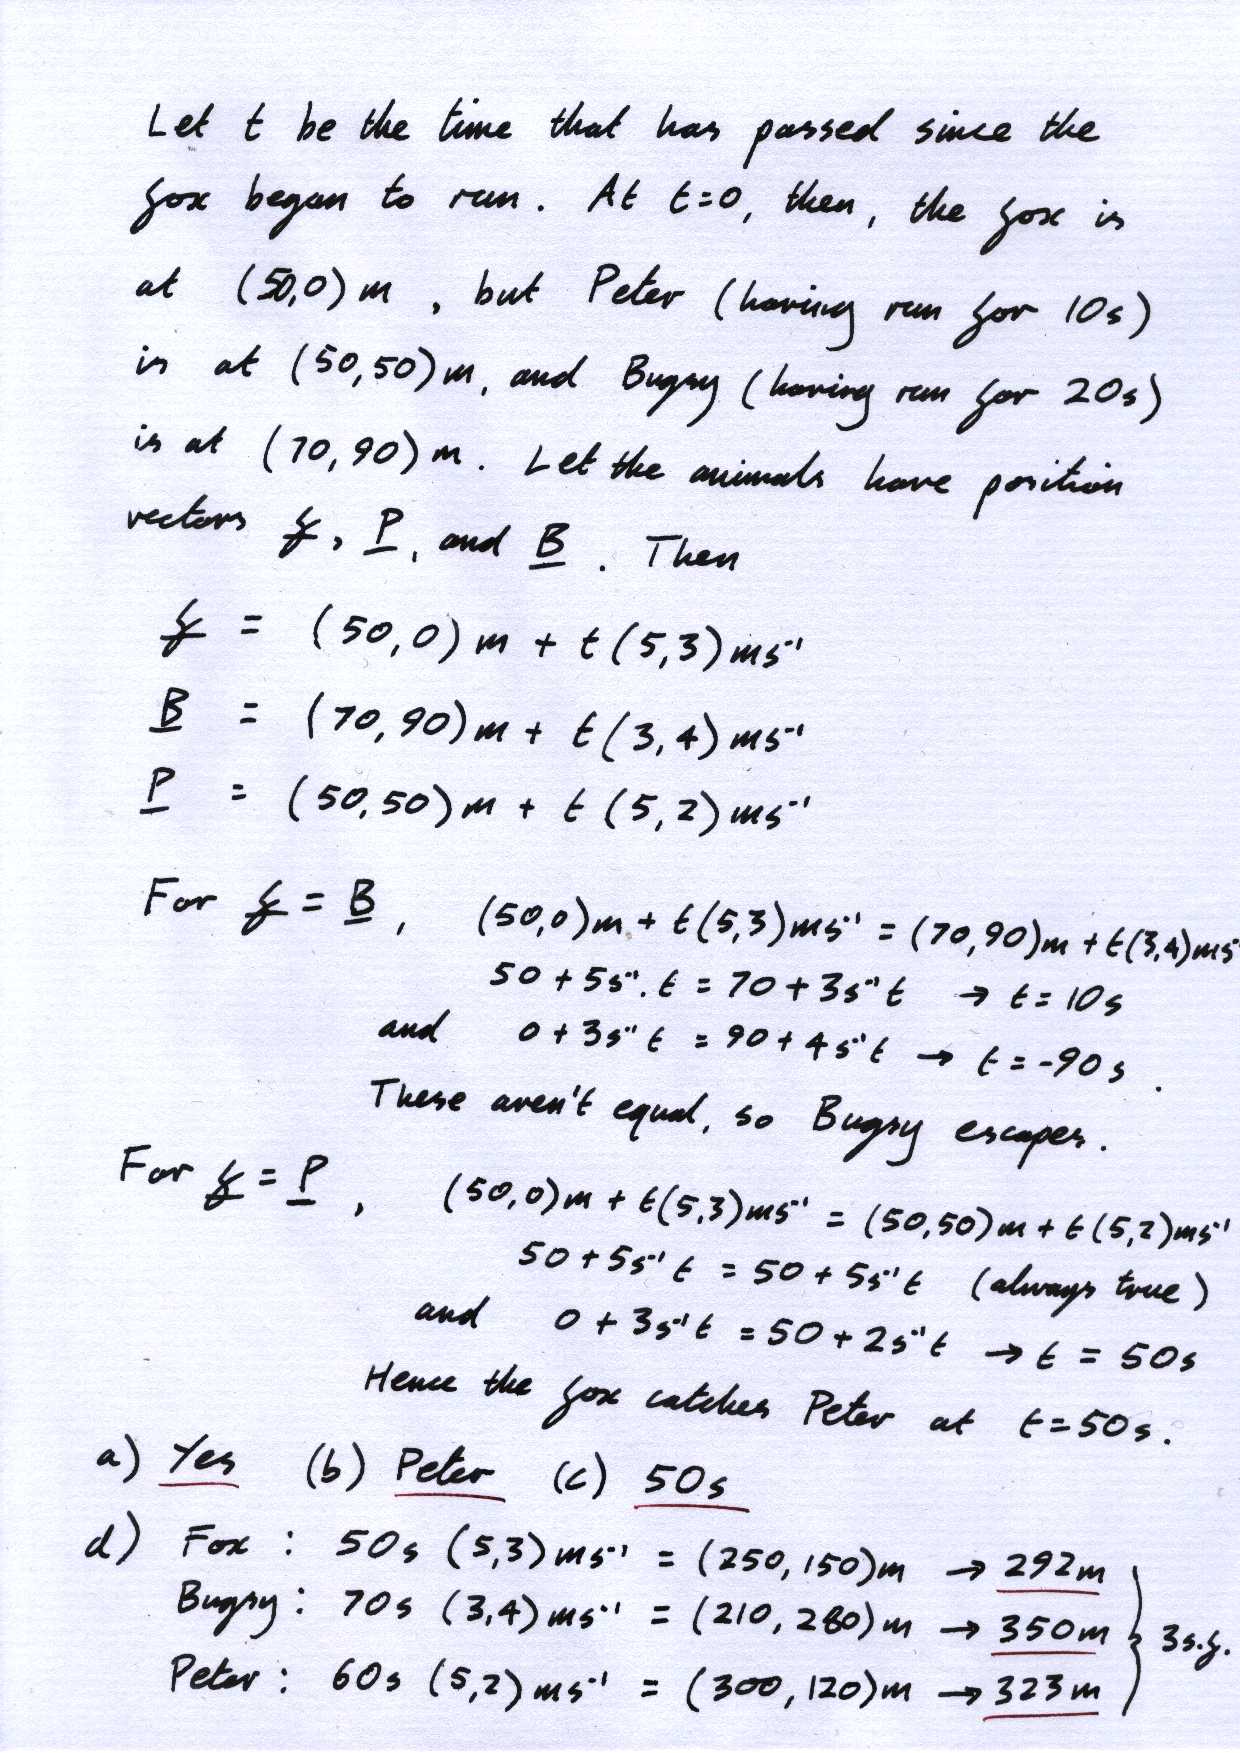 Let t be the time that has passed since the
fox began to run. At t=0, then, the fox is
at (50,0)m, but Peter (having run for 10s)
is at (50,50)m, and Bugsy (having run for 20s)
is at (70,90)m. Let the animals have position
vectors f, P, and B. Then
f = (50,0)m + t(5,3)ms⁻¹
B = (70,90)m + t(3,4)ms⁻¹
P = (50,50)m + t(5,2)ms⁻¹
For f = B, (50,0)m + t(5,3)ms⁻¹ = (70,90)m + t(3,4)ms⁻
50 + 5s⁻¹.t = 70 + 3s⁻¹t → t = 10s
and 0 + 3s⁻¹t = 90 + 4s⁻¹t → t = -90s.
These aren't equal, so Bugsy escapes.
For f = P, (50,0)m + t(5,3)ms⁻¹ = (50,50)m + t(5,2)ms⁻¹
50 + 5s⁻¹t = 50 + 5s⁻¹t (always true)
and 0 + 3s⁻¹t = 50 + 2s⁻¹t → t = 50s
Hence the fox catches Peter at t=50s.
a) Yes (b) Peter (c) 50s
d) Fox: 50s (5,3)ms⁻¹ = (250,150)m → 292m
Bugsy: 70s (3,4)ms⁻¹ = (210,280)m → 350m } 3s.f.
Peter: 60s (5,2)ms⁻¹ = (300,120)m → 323m